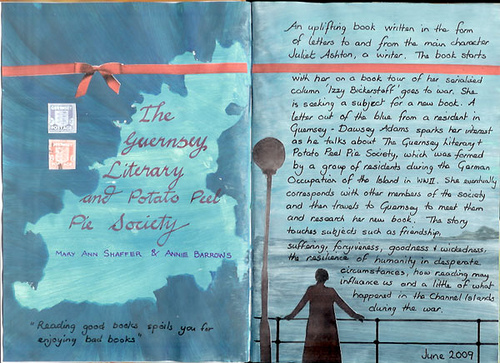 The
Guernsey
Literary
and Potato Peel
Pie Society
MARY ANN SHAFFER & ANNIE BARROWS
"Reading good books spoils you for
enjoying bad books"
An uplifting book written in the form
of letters to and from the main character
Juliet Ashton, a writer. The book starts
with her on a book tour of her serialised
column 'Izzy Bickerstaff' goes to war. She
is seeking a subject for a new book. A
letter out of the blue from a resident in
Guernsey - Dawsey Adams sparks her interest
as he talks about The Guernsey Literary +
Potato Peel Pie Society, which was formed
by a group of residents during the German
Occupation of the Island in WWII. She eventually
corresponds with other members of the society
and then travels to Guernsey to meet them
and research her new book. The story
touches subjects such as friendship,
suffering, forgiveness, goodness + wickedness,
the resilience of humanity in desperate
circumstances, how reading may
influence us and a little of what
happened in the Channel Islands
during the war.
June 2009